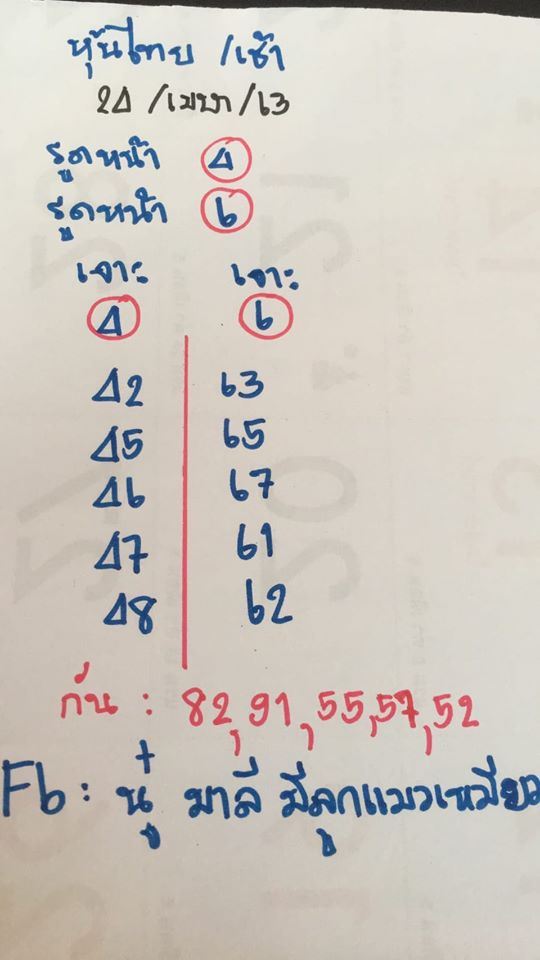 หุ้นไทย /เช้า
24 /เมษา /63
รูดหน้า 4
รูดหน้า 6
เจาะ เจาะ
4 6
42 63
45 65
46 67
47 61
48 62
กัน : 82, 91, 55, 57, 52
Fb : นู๋ มาลี มีลูกแมวเหมียว